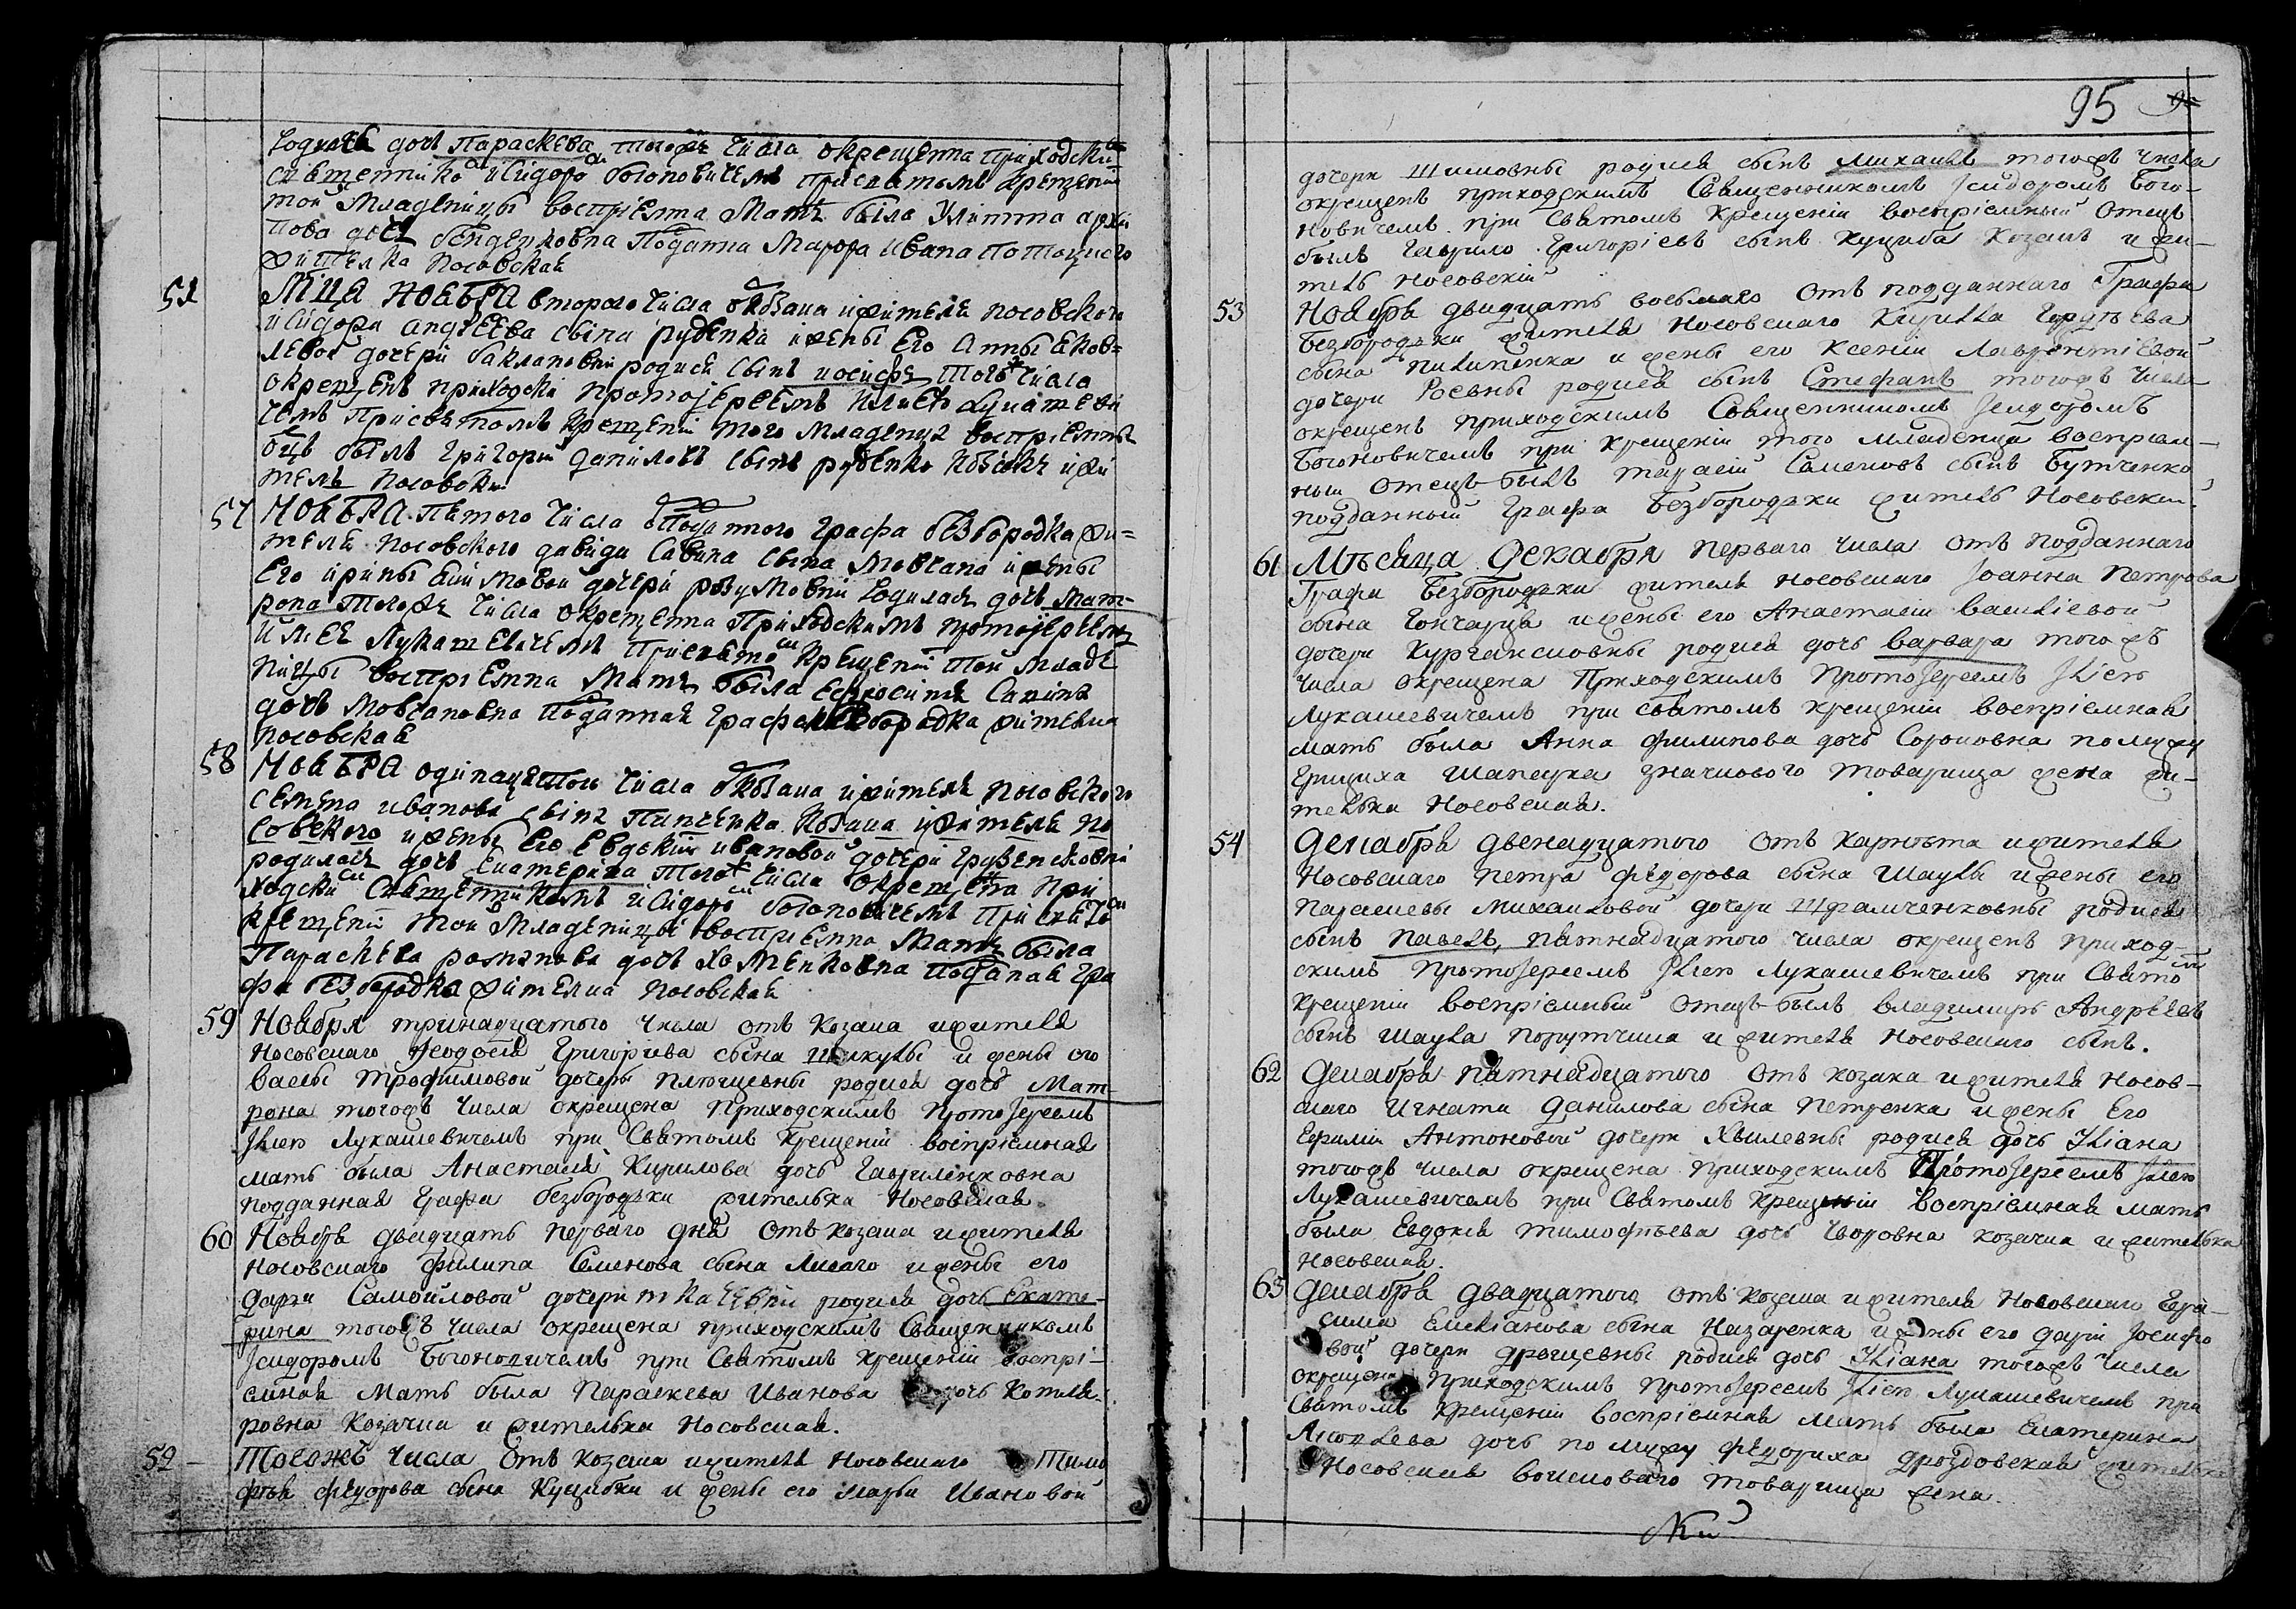 родилась дочь Параскева того ж числа окрещенна приходским
священнико исидоро богоновичемъ при святомъ крещении
той младеницы воспріемна мать была Улитта
пова дочь поданна маіора ивана потоцкого
жителка носовская
51 Мца ноября второго числа от козака и жителя носовского
исидора андреева сына руденка и жены его анны яков-
левой дочери баклановни родися сынъ иосифъ того ж числа
окрещенъ приходски протоіереемъ илиею лукашеви
чемъ при святомъ крещени того младенца воспріемны
отцъ былъ григорий даниловъ сынъ руденко козакъ и жи
тель носовски
57 Ноября пятого числа от поданного графа безбородка жи-
теля носовского давида савина сына мовчана и жены
его ирины дочери розумовни родилась дочь мат-
рона того ж числа окрещенна приходскимъ протоіереемъ
илиею лукашевичемъ при свято крещени той младе
ницы воспріемна мать была
дочь мовчановна поданная графа безбородка жителка
носовская
58 Ноября одинацятого числа от козака и жителя носовского
иванова сына козака и жителя но
совского и жены его евдокии ивановой дочери
родилась дочь екатерина того ж числа окрещена при
ходски священникомъ исидоро богоновичемъ при свято
крещени той младеницы воспріемна мать была
Параскева романова дочь хоменковна поданая гра
фа безбородка жителка носовская
59 Ноября тринадцатого числа отъ козака и жителя
носовскаго феодосія григоріева сына шкулы и жены его
васы трофимовой дочеры плющевны родися дочь мат-
рона тогожъ числа окрещена приходскимъ протоіереемъ
Іліею лукашевичемъ при святомъ крещеніи воспріемная
мать была анастасія кирилова дочь гавриленковна
подданная графа безбородки жителька носовская.
60 Ноября двадцать перваго дня отъ козака и жителя
носовскаго филипа семенова сына лисаго и жены его
дарьи самойловой дочери ткачевни родися дочь екате-
рина тогожъ числа окрещена приходскимъ священникомъ
Ісидоромъ богоновичемъ при святомъ крещеніи воспрі-
емная мать была параскева иванова дочь котля-
ровна козачка и жителька носовская.
52 - тогожъ числа отъ козака и жителя носовскаго тимо
фея федорова сына куцибки и жены его марьи ивановой
95
дочери шимовны родися сынъ михаилъ тогожъ числа
окрещенъ приходскимъ священникомъ Ісидоромъ бого-
новичемъ при святомъ крещеніи воспріемный отецъ
былъ гаврило григоріевъ сынъ куциба козакъ и жи-
тель носовскій
53 Ноября двадцать восьмаго отъ подданнаго графа
безбородки жителя носовскаго кирилла гордѣева
сына пилипенка и жены его ксеніи лаврентіевой
дочери родися сынъ стефанъ тогожъ числа
окрещенъ приходскимъ священникомъ Ісидоромъ
богоновичемъ при крещеніи того младенца воспріем-
ный отецъ былъ тарасій семеновъ сынъ бутченко
подданный графа безбородки житель носовский.
61 Мѣсяца декабря перваго числа отъ подданнаго
графа безбородки жителя носовскаго Іоанна петрова
сына гончарця и жены его анастасіи василіевой
дочери курчансковны родися дочь варвара тогожъ
числа окрещена приходскимъ протоіереемъ Іліею
лукашевичемъ при святомъ крещеніи воспріемная
мать была анна филипова дочь сороковна по мужу
грициха шапаука значкового товарища жена жи-
телька носовская.
54 декабря двенадцатого отъ и жителя
носовскаго петра федорова сына шаулы и жены его
параскевы михаиловой дочери родися
сынъ павелъ, пятнадцатого числа окрещенъ приход-
скимъ протоіереемъ Іліею лукашевичемъ при свято
крещеніи воспріемный отецъ былъ владимиръ андреевъ
сынъ шаула порутчика и жителя носовскаго сынъ.
62 декабря пятнадцатого отъ козака и жителя носов-
скаго игната данилова сына петренка и жены его
евфиміи антоновой дочери хвилевны родися дочь Іліана
тогожъ числа окрещена приходскимъ протоіереемъ Іліею
лукашевичемъ при святомъ крещеніи воспріемная мать
была евдокія тимофѣева дочь козачка и жителька
носовская.
63 декабря двадцатого отъ козака и жителя носовскаго гера-
сима емеліанова сына назаренка и жены его дарьи Іосифо
вой дочери родися дочь Іліана тогожъ числа
окрещена приходскимъ протоіереемъ Іліею лукашевичемъ при
святомъ крещеніи воспріемная мать была екатерина
яковлева дочь по мужу федориха дроздовская жителька
носовская войсковаго товарища жена.